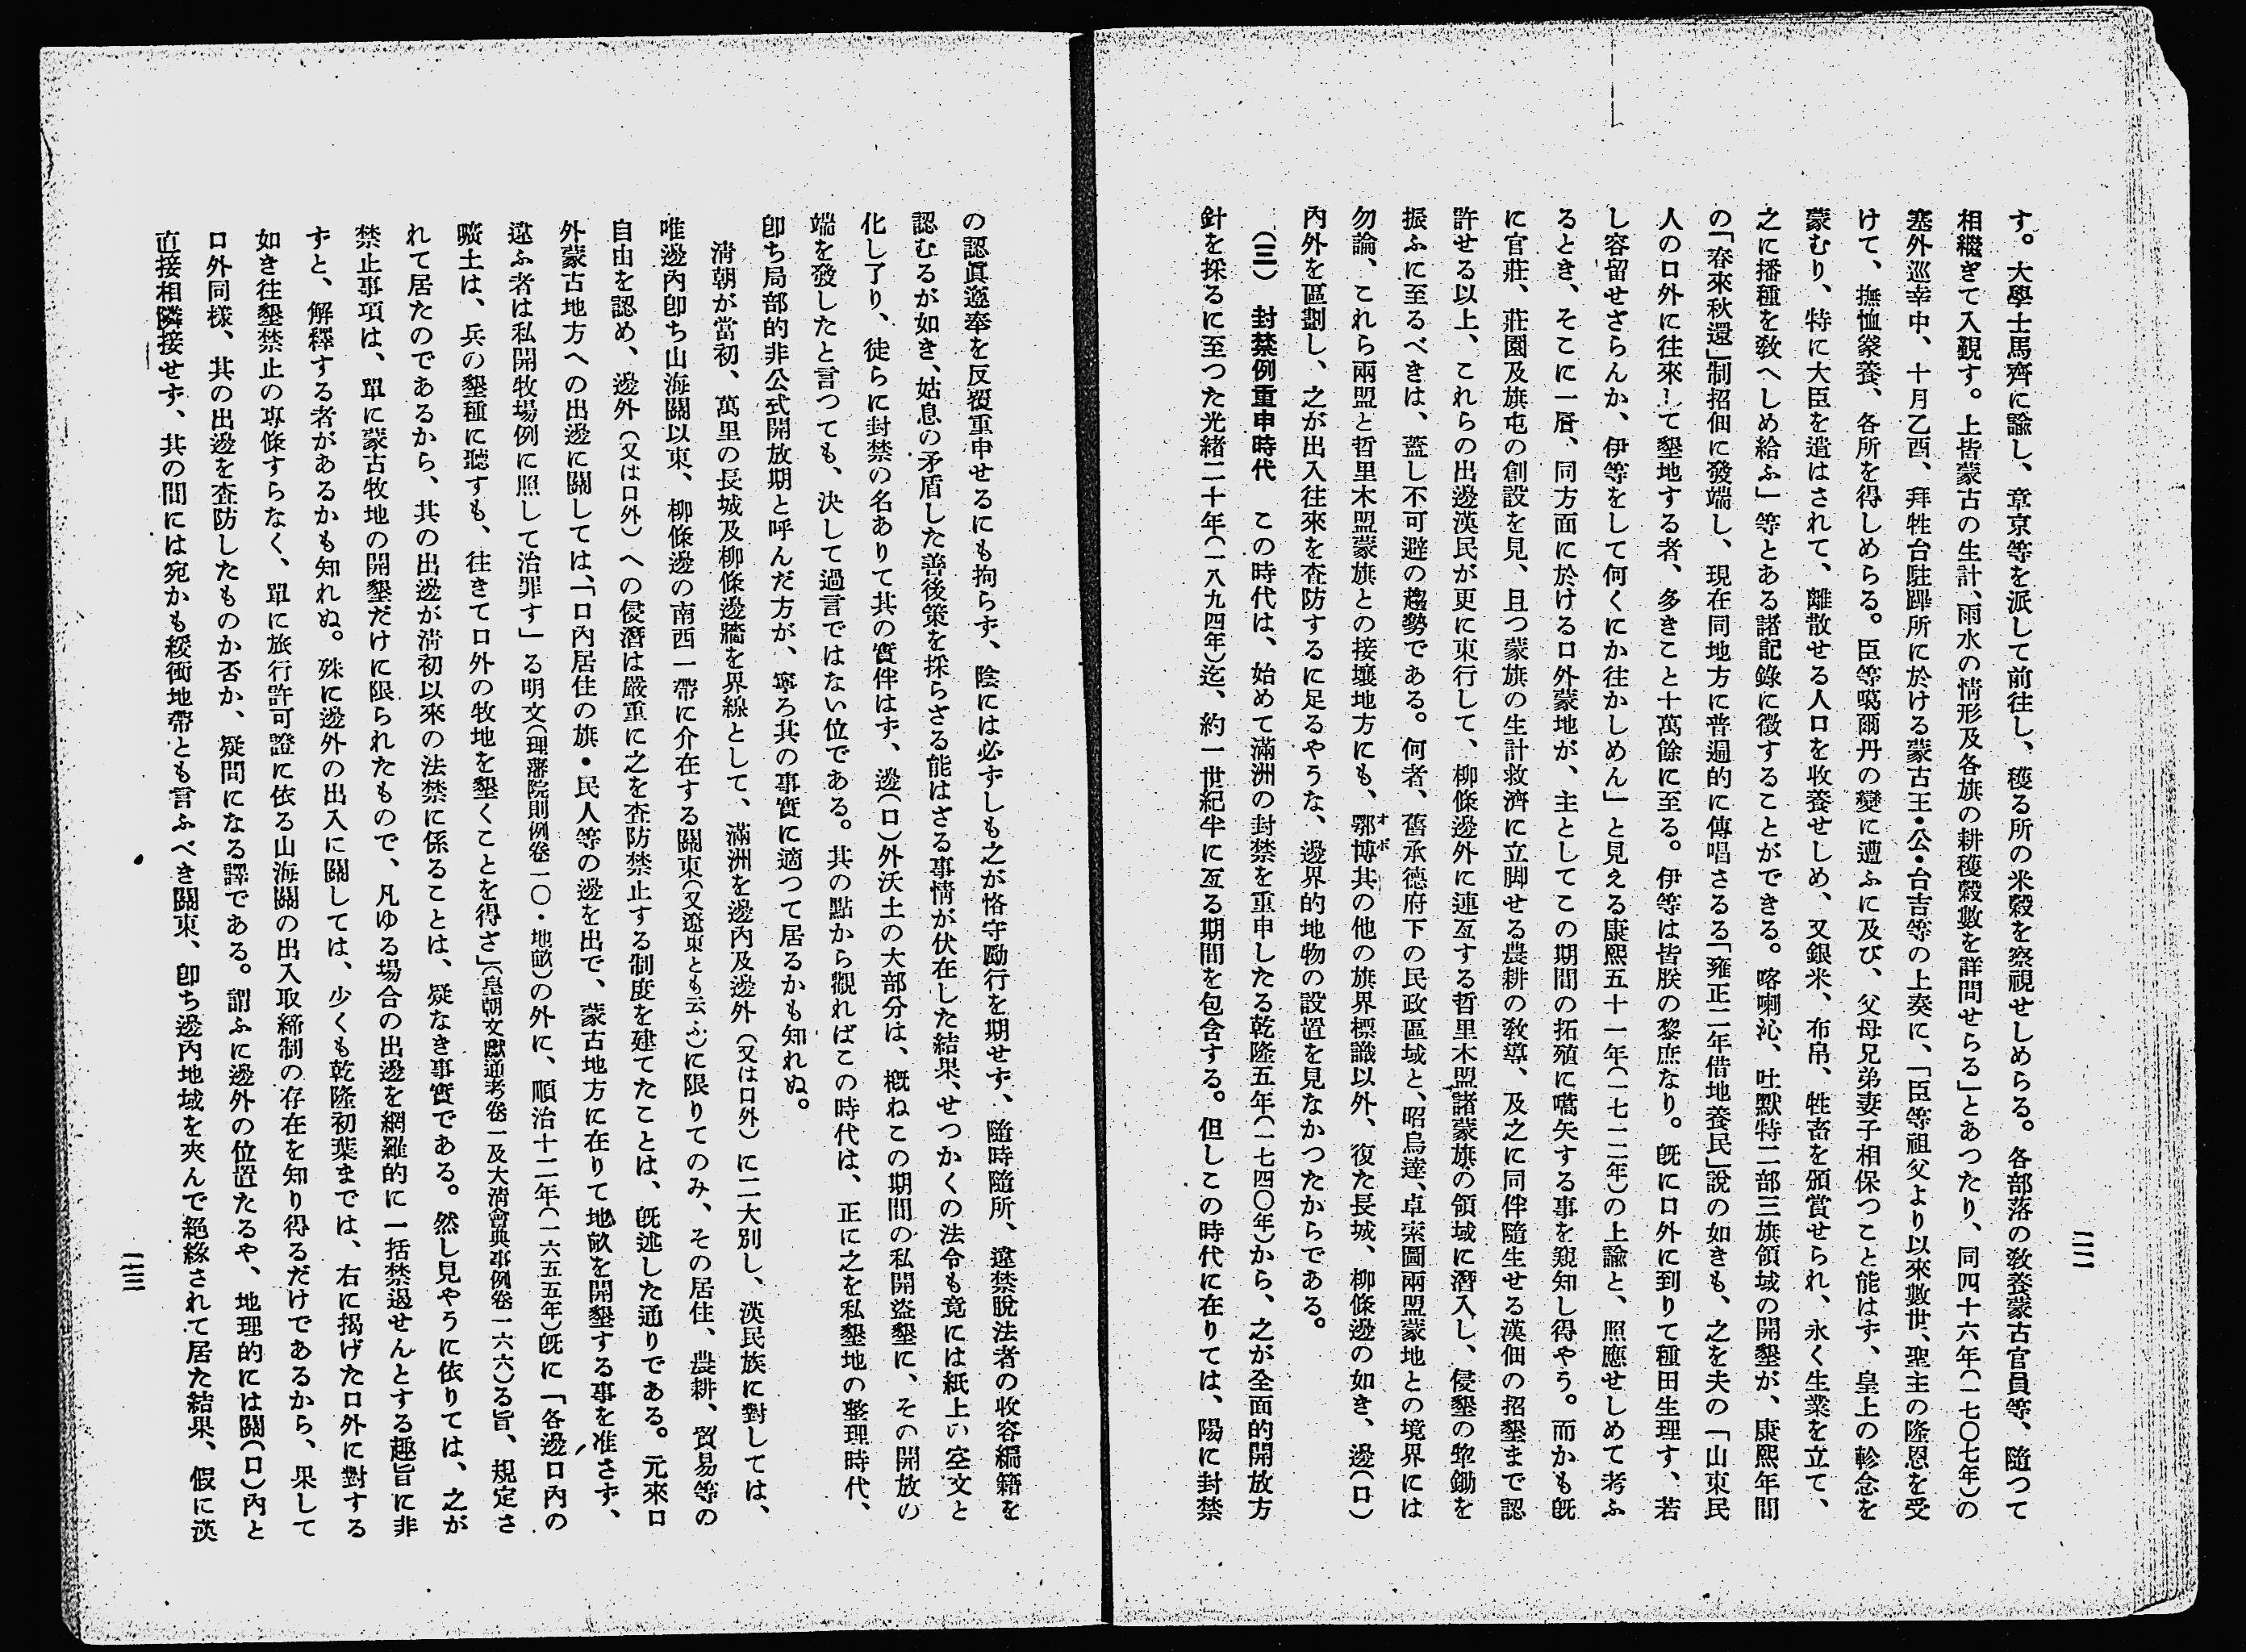 二二
す。大學士馬齊に諭し、章京等を派して前往し、穫る所の米穀を察視せしめらる。各部落の敎養蒙古官員等、隨つて
相繼ぎて入覲す。上皆蒙古の生計、雨水の情形及各旗の耕穫穀數を詳問せらる」とあつたり、同四十六年(一七〇七年)の
塞外巡幸中、十月乙酉、拜牲台駐蹕所に於ける蒙古王・公・台吉等の上奏に、「臣等祖父より以來數世、聖主の隆恩を受
けて、撫恤豢養、各所を得しめらる。臣等噶爾丹の變に遭ふに及び、父母兄弟妻子相保つこと能はず、皇上の軫念を
蒙むり、特に大臣を遣はされて、離散せる人口を收養せしめ、又銀米、布帛、牲畜を頒賞せられ、永く生業を立て、
之に播種を敎へしめ給ふ」等とある諸記錄に徵することができる。喀喇沁、吐默特二部三旗領域の開墾が、康熙年間
の「春來秋還」制招佃に發端し、現在同地方に普遍的に傳唱さるる「雍正二年借地養民」說の如きも、之を夫の「山東民
人の口外に往來して墾地する者、多きこと十萬餘に至る。伊等は皆朕の黎庶なり。旣に口外に到りて種田生理す、若
し容留せざらんか、伊等をして何くにか往かしめん」と見える康熙五十一年(一七一二年)の上諭と、照應せしめて考ふ
るとき、そこに一層、同方面に於ける口外蒙地が、主としてこの期間の拓殖に嚆矢する事を窺知し得やう。而かも旣
に官莊、莊園及旗屯の創設を見、且つ蒙旗の生計救濟に立脚せる農耕の敎導、及之に同伴隨生せる漢佃の招墾まで認
許せる以上、これらの出邊漢民が更に東行して、柳條邊外に連亙する哲里木盟諸蒙旗の領域に潛入し、侵墾の犂鋤を
振ふに至るべきは、蓋し不可避の趨勢である。何者、舊承德府下の民政區域と、昭烏達、卓索圖兩盟蒙地との境界には
勿論、これら兩盟と哲里木盟蒙旗との接壤地方にも、鄂博其の他の旗界標識以外、復た長城、柳條邊の如き、邊(口)
內外を區劃し、之が出入往來を査防するに足るやうな、邊界的地物の設置を見なかつたからである。
(三) 封禁例重申時代 この時代は、始めて滿洲の封禁を重申したる乾隆五年(一七四〇年)から、之が全面的開放方
針を採るに至つた光緖二十年(一八九四年)迄、約一世紀半に亙る期間を包含する。但しこの時代に在りては、陽に封禁
の認眞遵奉を反覆重申せるにも拘らず、陰には必ずしも之が恪守勵行を期せず、隨時隨所、違禁脫法者の收容編籍を
認むるが如き、姑息の矛盾した善後策を採らざる能はざる事情が伏在した結果、せつかくの法令も竟には紙上の空文と
化し了り、徒らに封禁の名ありて其の實伴はず、邊(口)外沃土の大部分は、槪ねこの期間の私開盜墾に、その開放の
端を發したと言つても、決して過言ではない位である。其の點から觀ればこの時代は、正に之を私墾地の整理時代、
卽ち局部的非公式開放期と呼んだ方が、寧ろ其の事實に適つて居るかも知れぬ。
淸朝が當初、萬里の長城及柳條邊牆を界線として、滿洲を邊內及邊外(又は口外)に二大別し、漢民族に對しては、
唯邊內卽ち山海關以東、柳條邊の南西一帶に介在する關東(又遼東とも云ふ)に限りてのみ、その居住、農耕、貿易等の
自由を認め、邊外(又は口外)への侵潛は嚴重に之を査防禁止する制度を建てたことは、旣述した通りである。元來口
外蒙古地方への出邊に關しては、「口內居住の旗・民人等の邊を出で、蒙古地方に在りて地畝を開墾する事を准さず、
違ふ者は私開牧場例に照して治罪す」る明文(理藩院則例卷一〇・地畝)の外に、順治十二年(一六五五年)旣に「各邊口內の
曠土は、兵の墾種に聽すも、往きて口外の牧地を墾くことを得ざ」(皇朝文獻通考卷一及大淸會典事例卷一六六)る旨、規定さ
れて居たのであるから、其の出邊が淸初以來の法禁に係ることは、疑なき事實である。然し見やうに依りては、之が
禁止事項は、單に蒙古牧地の開墾だけに限られたもので、凡ゆる場合の出邊を網羅的に一括禁遏せんとする趣旨に非
ずと、解釋する者があるかも知れぬ。殊に邊外の出入に關しては、少くも乾隆初葉までは、右に揭げた口外に對する
如き往墾禁止の專條すらなく、單に旅行許可證に依る山海關の出入取締制の存在を知り得るだけであるから、果して
口外同樣、其の出邊を査防したものか否か、疑問になる譯である。謂ふに邊外の位置たるや、地理的には關(口)內と
直接相隣接せず、其の間には宛かも緩衝地帶とも言ふべき關東、卽ち邊內地域を夾んで絕緣されて居た結果、假に漢
二三